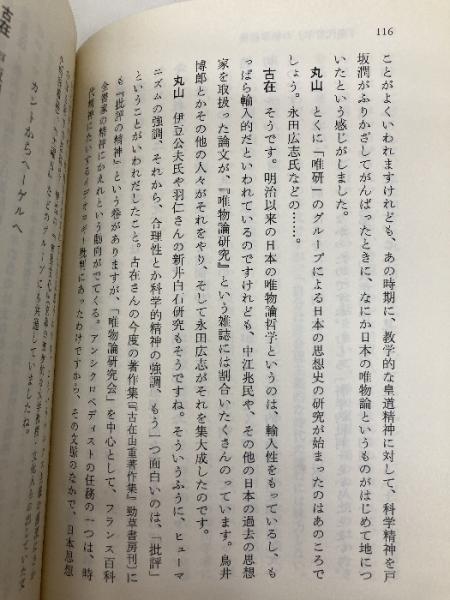 116
ことがよくいわれますけれども、あの時期に、教学的な皇道精神に対して、科学精神を戸
坂潤がふりかざしてがんばったときに、なにか日本の唯物論というものがはじめて地につ
いたという感じがしました。
丸山　とくに「唯研」のグループによる日本の思想史の研究が始まったのはあのころで
しょう。永田広志氏などの……。
古在　そうです。明治以来の日本の唯物論哲学というのは、輸入性をもっているし、も
っぱら輸入的だといわれているのですけれども、中江兆民や、その他の日本の過去の思想
家を取扱った論文が、『唯物論研究』という雑誌には割合いたくさんのっています。鳥井
博郎とかその他の人々がそれをやり、そして永田広志がそれを集大成したのです。
丸山　伊豆公夫氏や羽仁さんの新井白石研究もそうですね。そういうふうに、ヒューマ
ニズムの強調、それから、合理性とか科学的精神の強調、もう一つ面白いのは、「批評」
ということがいわれだしたこと。古在さんの今度の著作集『古在由重著作集』勁草書房刊〕に
も『批評の精神』という巻がありますが、「唯物論研究会」を中心として、フランス百科
全書家の精神にかえれという動向がでてくる。アンシクロペディストの任務の一つは、時
代精神にたいするイデオロギー批判にあったわけですから、その文脈のなかで、日本思想
などのグループにも共通していましたね。
カントからヘーゲルへ
古在